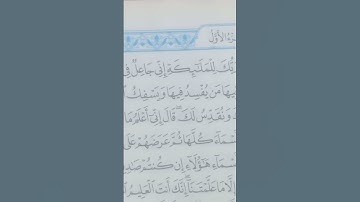 الْأَوَّلُ
لِلْمَلَٰٓئِكَةِ إِنِّي جَاعِلٌ فِي
مَن يُفْسِدُ فِيهَا وَيَسْفِكُ
وَنُقَدِّسُ لَكَ ۖ قَالَ إِنِّيٓ أَعْلَمُ مَا
كُلَّهَا ثُمَّ عَرَضَهُمْ عَلَى
هَٰٓؤُلَآءِ إِن كُنتُمْ
إِلَّا مَا عَلَّمْتَنَآ ۖ إِنَّكَ أَنتَ الْعَلِيمُ